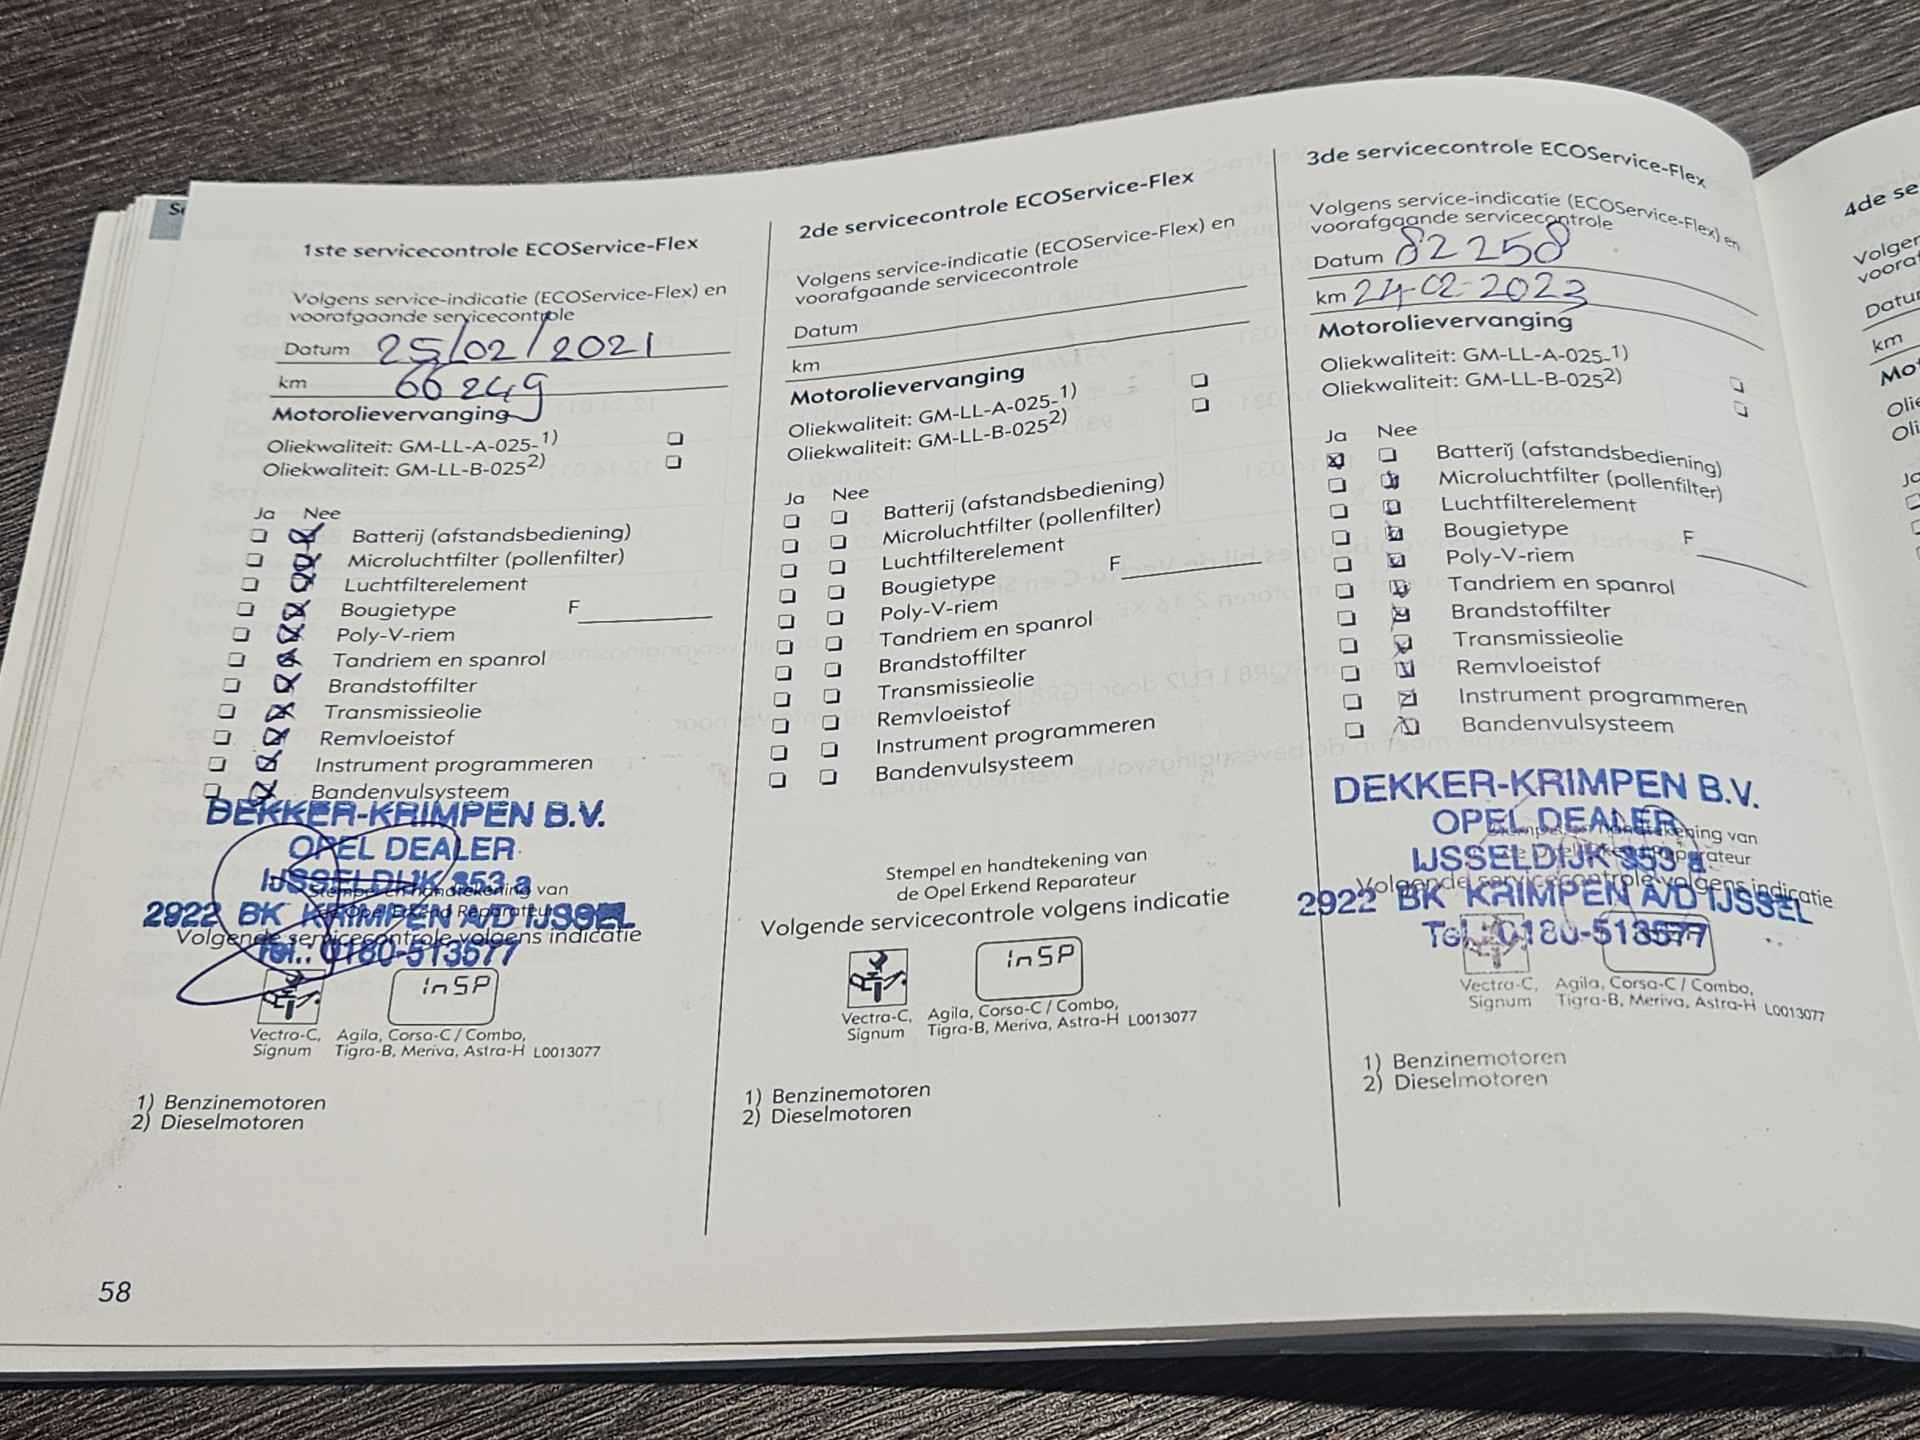 1ste servicecontrole ECOService-Flex
Volgens service-indicatie (ECOService-Flex) en
voorafgaande servicecontrole
Datum 25/02/2021
km 66249
Motorolievervanging
Oliekwaliteit: GM-LL-A-025-1)
Oliekwaliteit: GM-LL-B-025 2)
Ja Nee
Batterij (afstandsbediening)
Microluchtfilter (pollenfilter)
Luchtfilterelement
Bougietype F
Poly-V-riem
Tandriem en spanrol
Brandstoffilter
Transmissieolie
Remvloeistof
Instrument programmeren
Bandenvulsysteem
DEKKER-KRIMPEN B.V.
OPEL DEALER
IJSSELDIJK 353 a
Stempel en handtekening van
de Opel Erkend Reparateur
2922 BK KRIMPEN A/D IJSSEL
Volgende servicecontrole volgens indicatie
Tel.: 0180-513577
InSP
Vectra-C, Agila, Corsa-C / Combo,
Signum Tigra-B, Meriva, Astra-H L0013077
1) Benzinemotoren
2) Dieselmotoren
58
2de servicecontrole ECOService-Flex
Volgens service-indicatie (ECOService-Flex) en
voorafgaande servicecontrole
Datum
km
Motorolievervanging
Oliekwaliteit: GM-LL-A-025-1)
Oliekwaliteit: GM-LL-B-025 2)
Ja Nee
Batterij (afstandsbediening)
Microluchtfilter (pollenfilter)
Luchtfilterelement
Bougietype F
Poly-V-riem
Tandriem en spanrol
Brandstoffilter
Transmissieolie
Remvloeistof
Instrument programmeren
Bandenvulsysteem
Stempel en handtekening van
de Opel Erkend Reparateur
Volgende servicecontrole volgens indicatie
InSP
Vectra-C, Agila, Corsa-C / Combo,
Signum Tigra-B, Meriva, Astra-H L0013077
1) Benzinemotoren
2) Dieselmotoren
3de servicecontrole ECOService-Flex
Volgens service-indicatie (ECOService-Flex) en
voorafgaande servicecontrole
Datum 82258
km 24-02-2023
Motorolievervanging
Oliekwaliteit: GM-LL-A-025-1)
Oliekwaliteit: GM-LL-B-025 2)
Ja Nee
Batterij (afstandsbediening)
Microluchtfilter (pollenfilter)
Luchtfilterelement
Bougietype F
Poly-V-riem
Tandriem en spanrol
Brandstoffilter
Transmissieolie
Remvloeistof
Instrument programmeren
Bandenvulsysteem
DEKKER-KRIMPEN B.V.
OPEL DEALER
Stempel en handtekening van
IJSSELDIJK 353 a
de Opel Erkend Reparateur
Volgende servicecontrole volgens indicatie
2922 BK KRIMPEN A/D IJSSEL
Tel.: 0180-513577
Vectra-C, Agila, Corsa-C / Combo,
Signum Tigra-B, Meriva, Astra-H L0013077
1) Benzinemotoren
2) Dieselmotoren
4de
km